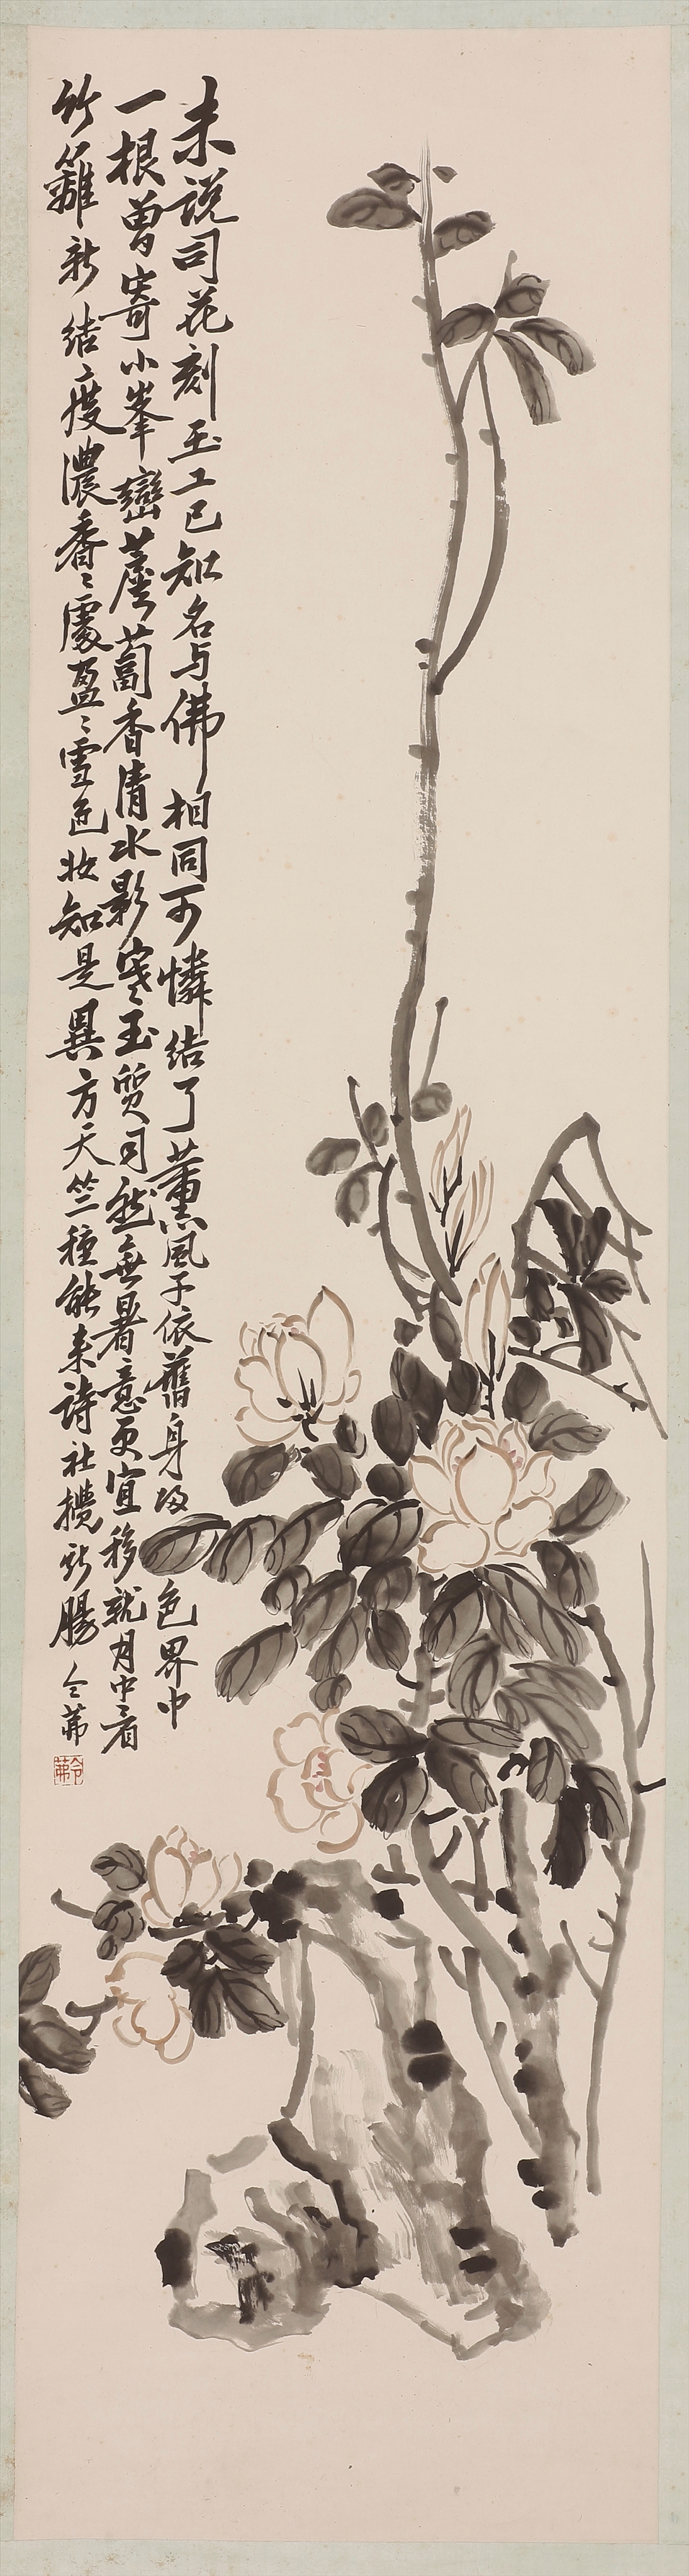 未說司花刻玉工已知名与佛相同可憐結了薰風子依舊身歸色界中
一根曾寄小峯巒薝蔔香清水影寒玉質自然無暑意更宜移就月中看
竹籬新結度濃香香處盈盈雪色妝知是異方天竺種能来詩社攪新腸